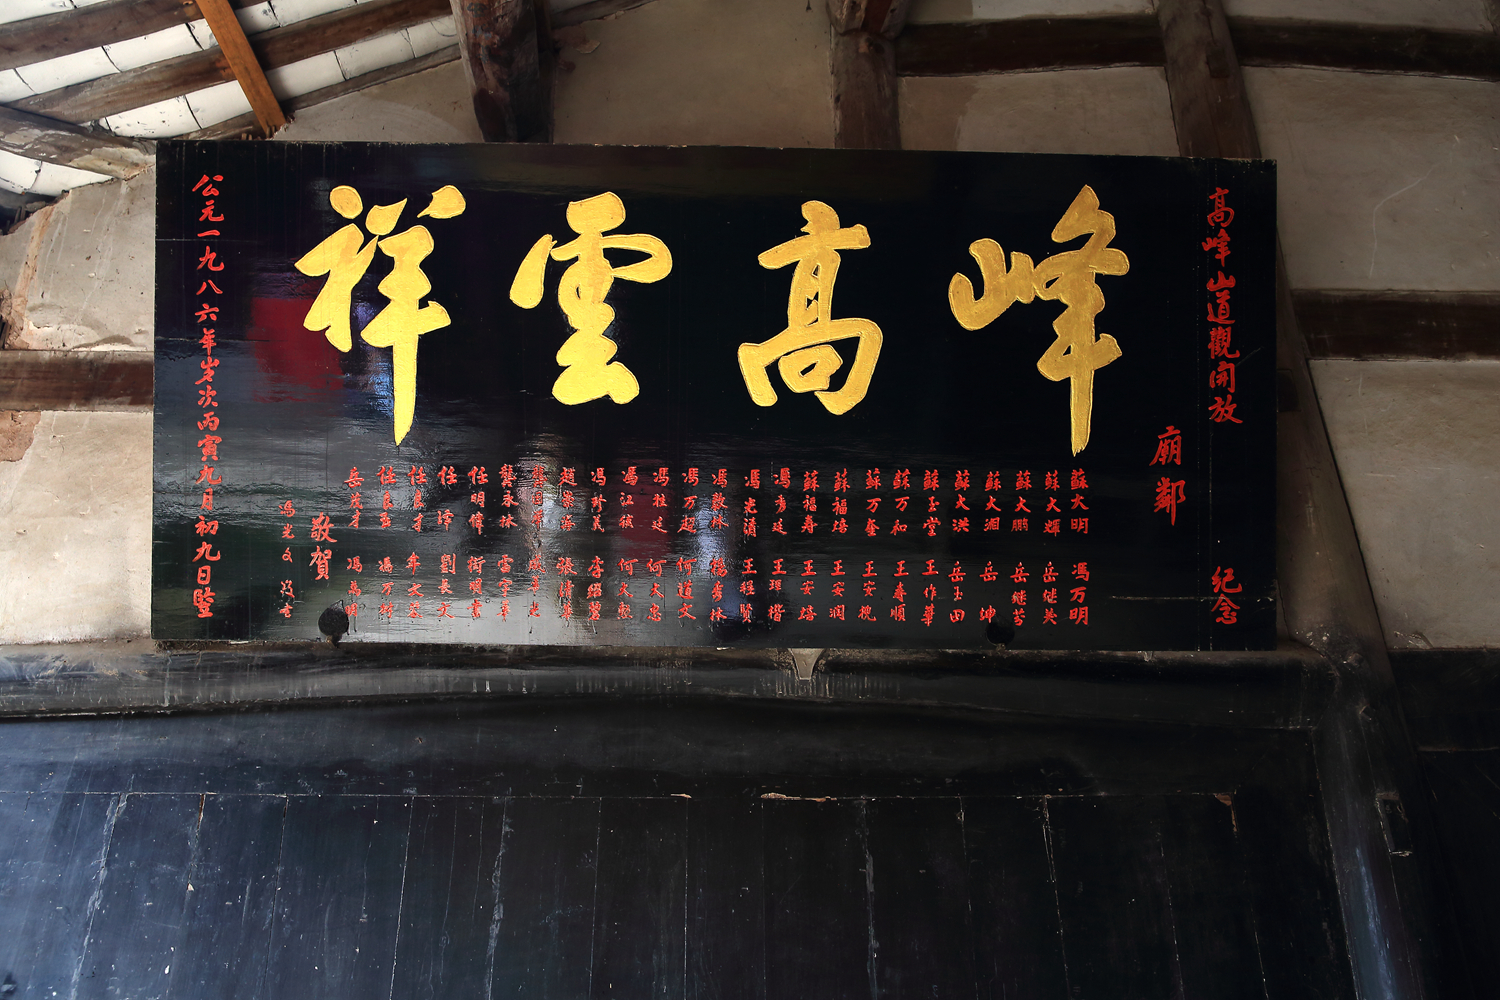 高峰山道觀開放 紀念
廟鄰
峰高雲祥
蘇大明 馮万明
蘇大輝 岳继英
蘇大鹏 岳继芳
蘇大湘 岳 坤
蘇大洪 岳玉田
蘇玉堂 王作華
蘇万和 王壽順
蘇万奎 王安槐
蘇福培 王安润
蘇福寿 王安
馮秀廷 王
馮光 王 賢
馮 林 楊秀林
馮万超 何道文
馮桂廷 何大忠
馮江 何大
馮珍美 李紹碧
趙荣海 張清華
龔国
龔永林 雷 華
任明偉 衛明書
任 劉長文
任良才 牟大蓉
任良玉 馮万財
岳茂才 馮萬明
敬賀
馮光文 書
公元一九八六年岁次丙寅九月初九日竪